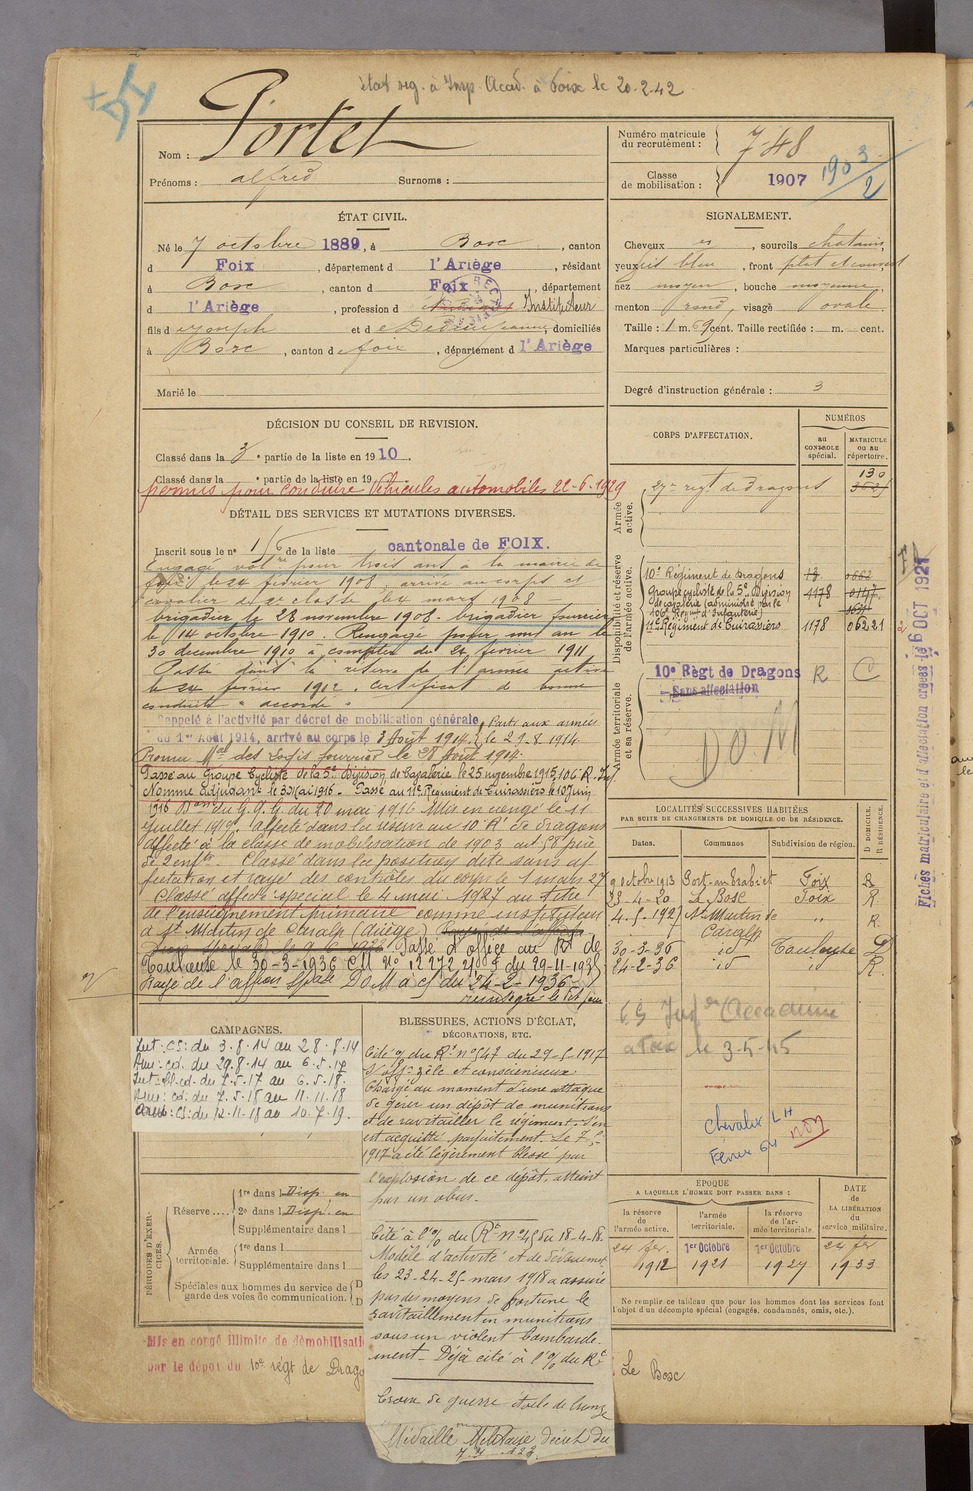 état sig. à Insp. Acad. à Foix le 20-2-42
Nom : Portet
Prénoms : alfred Surnoms :
Numéro matricule du recrutement : 748
Classe de mobilisation : 1907 1903/2
ÉTAT CIVIL.
Né le 7 octobre 1889, à Bosc, canton
d Foix, département d l'Ariège, résidant
à Bosc, canton d Foix, département
d l'Ariège, profession d Instituteur
fils d Joseph et d jeanne domiciliés
à Bosc, canton de foix, département d l'Ariège
Marié le
SIGNALEMENT.
Cheveux, sourcils chatains,
yeux bleu, front
nez moyen, bouche moyenne,
menton rond, visage ovale.
Taille : 1 m. 69 cent. Taille rectifiée : m. cent.
Marques particulières :
Degré d'instruction générale : 3
DÉCISION DU CONSEIL DE REVISION.
Classé dans la 3e partie de la liste en 1910.
Classé dans la e partie de la liste en 19
permis pour conduire Véhicules automobiles 22-6-1929
DÉTAIL DES SERVICES ET MUTATIONS DIVERSES.
Inscrit sous le n° 16 de la liste cantonale de FOIX.
Engagé volre pour trois ans à la mairie de
foix le 24 février 1908 arrivé au corps et
cavalier de 2e classe le 4 mars 1908 —
brigadier le 28 novembre 1908. brigadier fourrier
le 14 octobre 1910. Rengagé pour un an le
30 decembre 1910 à compter du 24 février 1911
Passé dans la réserve de l'armée active
le 24 février 1912. certificat de bonne
conduite "accordé"
Rappelé à l'activité par décret de mobilisation générale Parti aux armées
du 1er Août 1914, arrivé au corps le 3 Août 1914. le 29.8.1914
Promu Mal des Logis fourrier le 28 Août 1914
Passé au Groupe Cycliste de la 5e Division de Cavalerie le 25 novembre 1915, 106e R. Inf
Nommé adjudant le 30 Mai 1916 - Passé au 11e Régiment de Cuirassiers le 10 Juin
1916 Don du G.Q.G. du 20 mai 1916 Mis en congé le 11
juillet 1919. Affecté dans la réserve au 10e Rt de dragons
affecté à la classe de mobilisation de 1903 art 58 père
de 2 enfts. Classé dans la position dite sans af
fectation et rayé des contrôles du corps le 1 mars 27
Classé affecté spécial le 4 mai 1927 au titre
de l'enseignement primaire comme instituteur
à St Martin de Caralp (Ariège)
Passé d'office au Rt de
Toulouse le 30-3-1936 CM N° 12272 du 29-11-1935
Rayé de l'affon Spale DOM à cf du 24-2-1936
réintégré le
CORPS D'AFFECTATION.
NUMÉROS
au CONTROLE spécial.
MATRICULE ou au répertoire.
Armée active.
27e regt de Dragons 130
Disponibilité et réserve de l'armée active.
10e Régiment de dragons 13 662
Groupe cycliste de la 5e Division 1178
de cavalerie (administré par le
106e Régimt d'Infanterie)
11e Régiment de Cuirassiers 1178 06221
Armée territoriale et sa réserve.
10e Règt de Dragons R
Sans affectation
DO.M
Fiches matriculaire et d'affectation créées le 6 OCT 1921
LOCALITÉS SUCCESSIVES HABITÉES
PAR SUITE DE CHANGEMENTS DE DOMICILE OU DE RÉSIDENCE.
Dates. Communes Subdivision de région. D DOMICILE. R RÉSIDENCE.
9 octobre 1913 Foix R
23-4-20 Le Bosc Foix R
4-5-1927 St Martin de Caralp " R
30-3-36 id Toulouse D
24-2-36 id id R.
à Foix le 3-5-45
Chevalier LH
Février 64
non
CAMPAGNES.
Int : CS : du 3.8.14 au 28.8.14
Aux : cd. du 29.8.14 au 6.5.17
Int : cd. du 7.5.17 au 6.5.18.
Aux : cd. du 7.5.18 au 11.11.18
Aux : CS : du 12-11-18 au 10.7.19.
BLESSURES, ACTIONS D'ÉCLAT,
DÉCORATIONS, ETC.
Cité o/ du Rt n° 547 du 29-5-1917
S'off. zélé et consciencieux
Chargé au moment d'une attaque
de gérer un dépôt de munitions
et de ravitailler le régiment. S'en
est acquitté parfaitement. Le
1917 a été légèrement blessé par
l'explosion de ce dépôt, atteint
par un obus.
Cité à l'o/o du Rt n° 45 du 18-4-18.
Modèle d'activité et de dévouement
les 23-24-25 mars 1918 a assuré
par des moyens de fortune le
ravitaillement en munitions
sous un violent bombarde-
ment - Déjà cité à l'o/o du Rt
Croix de guerre étoile de bronze
Médaille Militaire décret du
PÉRIODES D'EXERCICES.
Réserve.... 1re dans l Disp. en
2e dans l Disp. en
Supplémentaire dans l
Armée territoriale. 1re dans l
Supplémentaire dans l
Spéciales aux hommes du service de garde des voies de communication. D D
Mis en congé illimité de démobilisati
par le dépôt du 10e régt de Drago
Le Bosc
ÉPOQUE
A LAQUELLE L'HOMME DOIT PASSER DANS :
la réserve de l'armée active. l'armée territoriale. la réserve de l'armée territoriale.
DATE de LA LIBÉRATION du service militaire.
24 fer 1912 1er Octobre 1921 1er Octobre 1927 24 fer 1933
Ne remplir ce tableau que pour les hommes dont les services font
l'objet d'un décompte spécial (engagés, condamnés, omis, etc.).